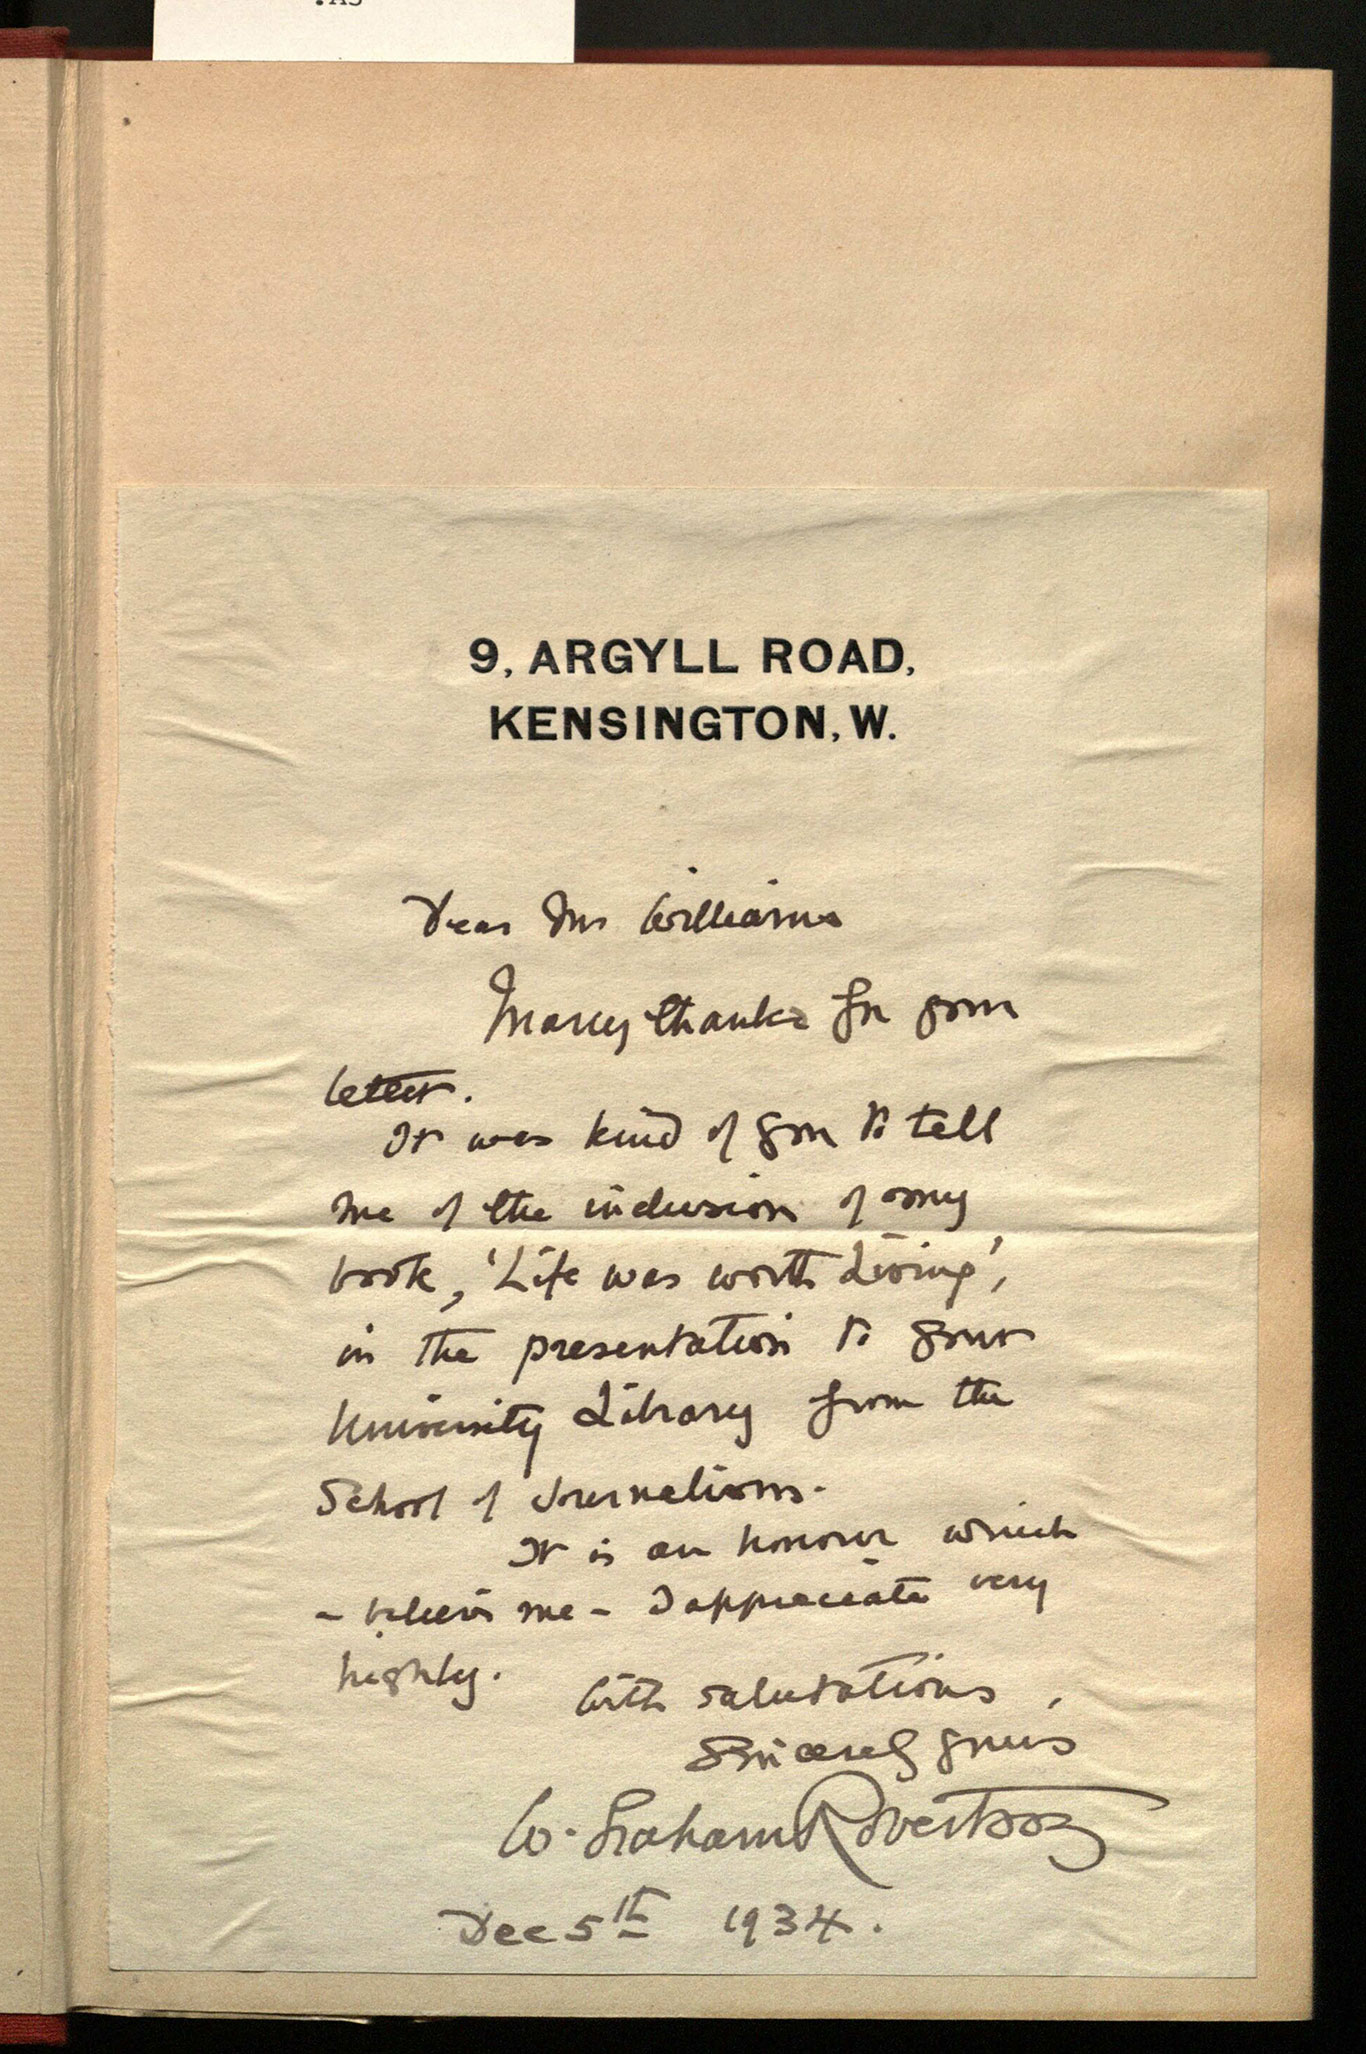 9, ARGYLL ROAD,
KENSINGTON, W.
Dear Mr Williams
Many thanks for your
letter.
It was kind of you to tell
me of the inclusion of my
book, 'Life was worth Living',
in the presentation to your
University Library from the
School of Journalism.
It is an honour which
- believe me - I appreciate very
highly.
With salutations,
Sincerely yours
W. Graham Robertson
Dec 5th 1934.